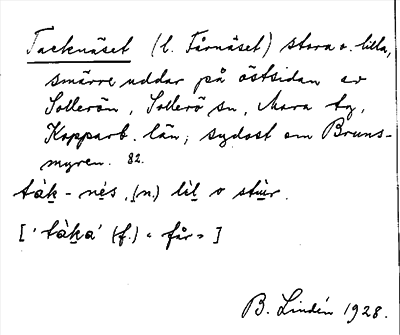 Tacknäset (l. Fårnäset) stora o. lilla,
smärre uddar på östsidan av
Sollerön, Sollerö sn, Mora tg,
Kopparb. län; sydost om Bruns-
myren. 82.
tàk-nés, (n) lìl o stùr.
['tàka' (f.) « får »]
B. Lindén 1928.